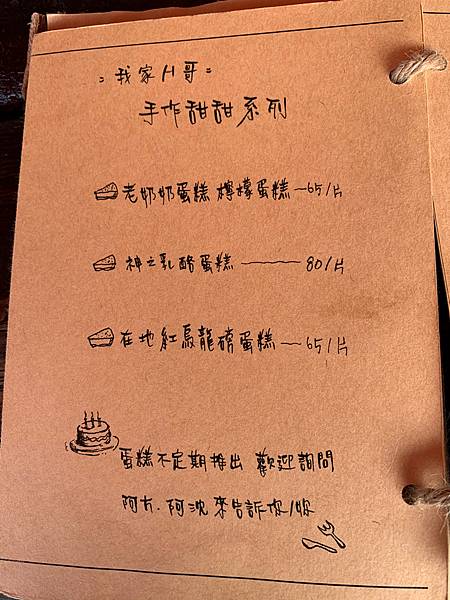 :我家H哥:
手作甜甜系列
老奶奶蛋糕 檸檬蛋糕—65/片
神之乳酪蛋糕——80/片
在地紅烏龍磅蛋糕—65/片
蛋糕不定期推出 歡迎詢問
阿六.阿沈來告訴你/妳